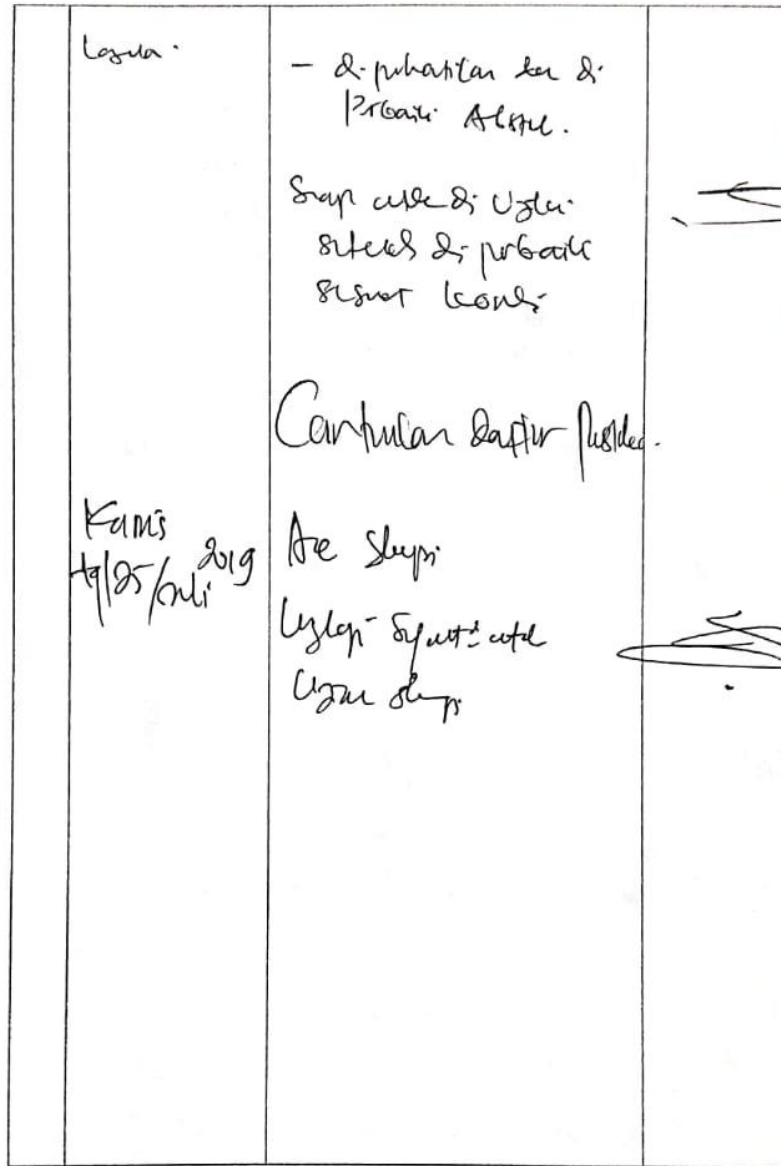 - di perhatikan dan di
Perbaiki Abstrak.
Siap untuk di Uji
setelah di perbaiki
sesuai
Cantumkan Daftar Pustaka.
Kamis
tgl 25/Juli 2019
Acc Skripsi
Lengkapi Syarat² untuk
Ujian Skripsi